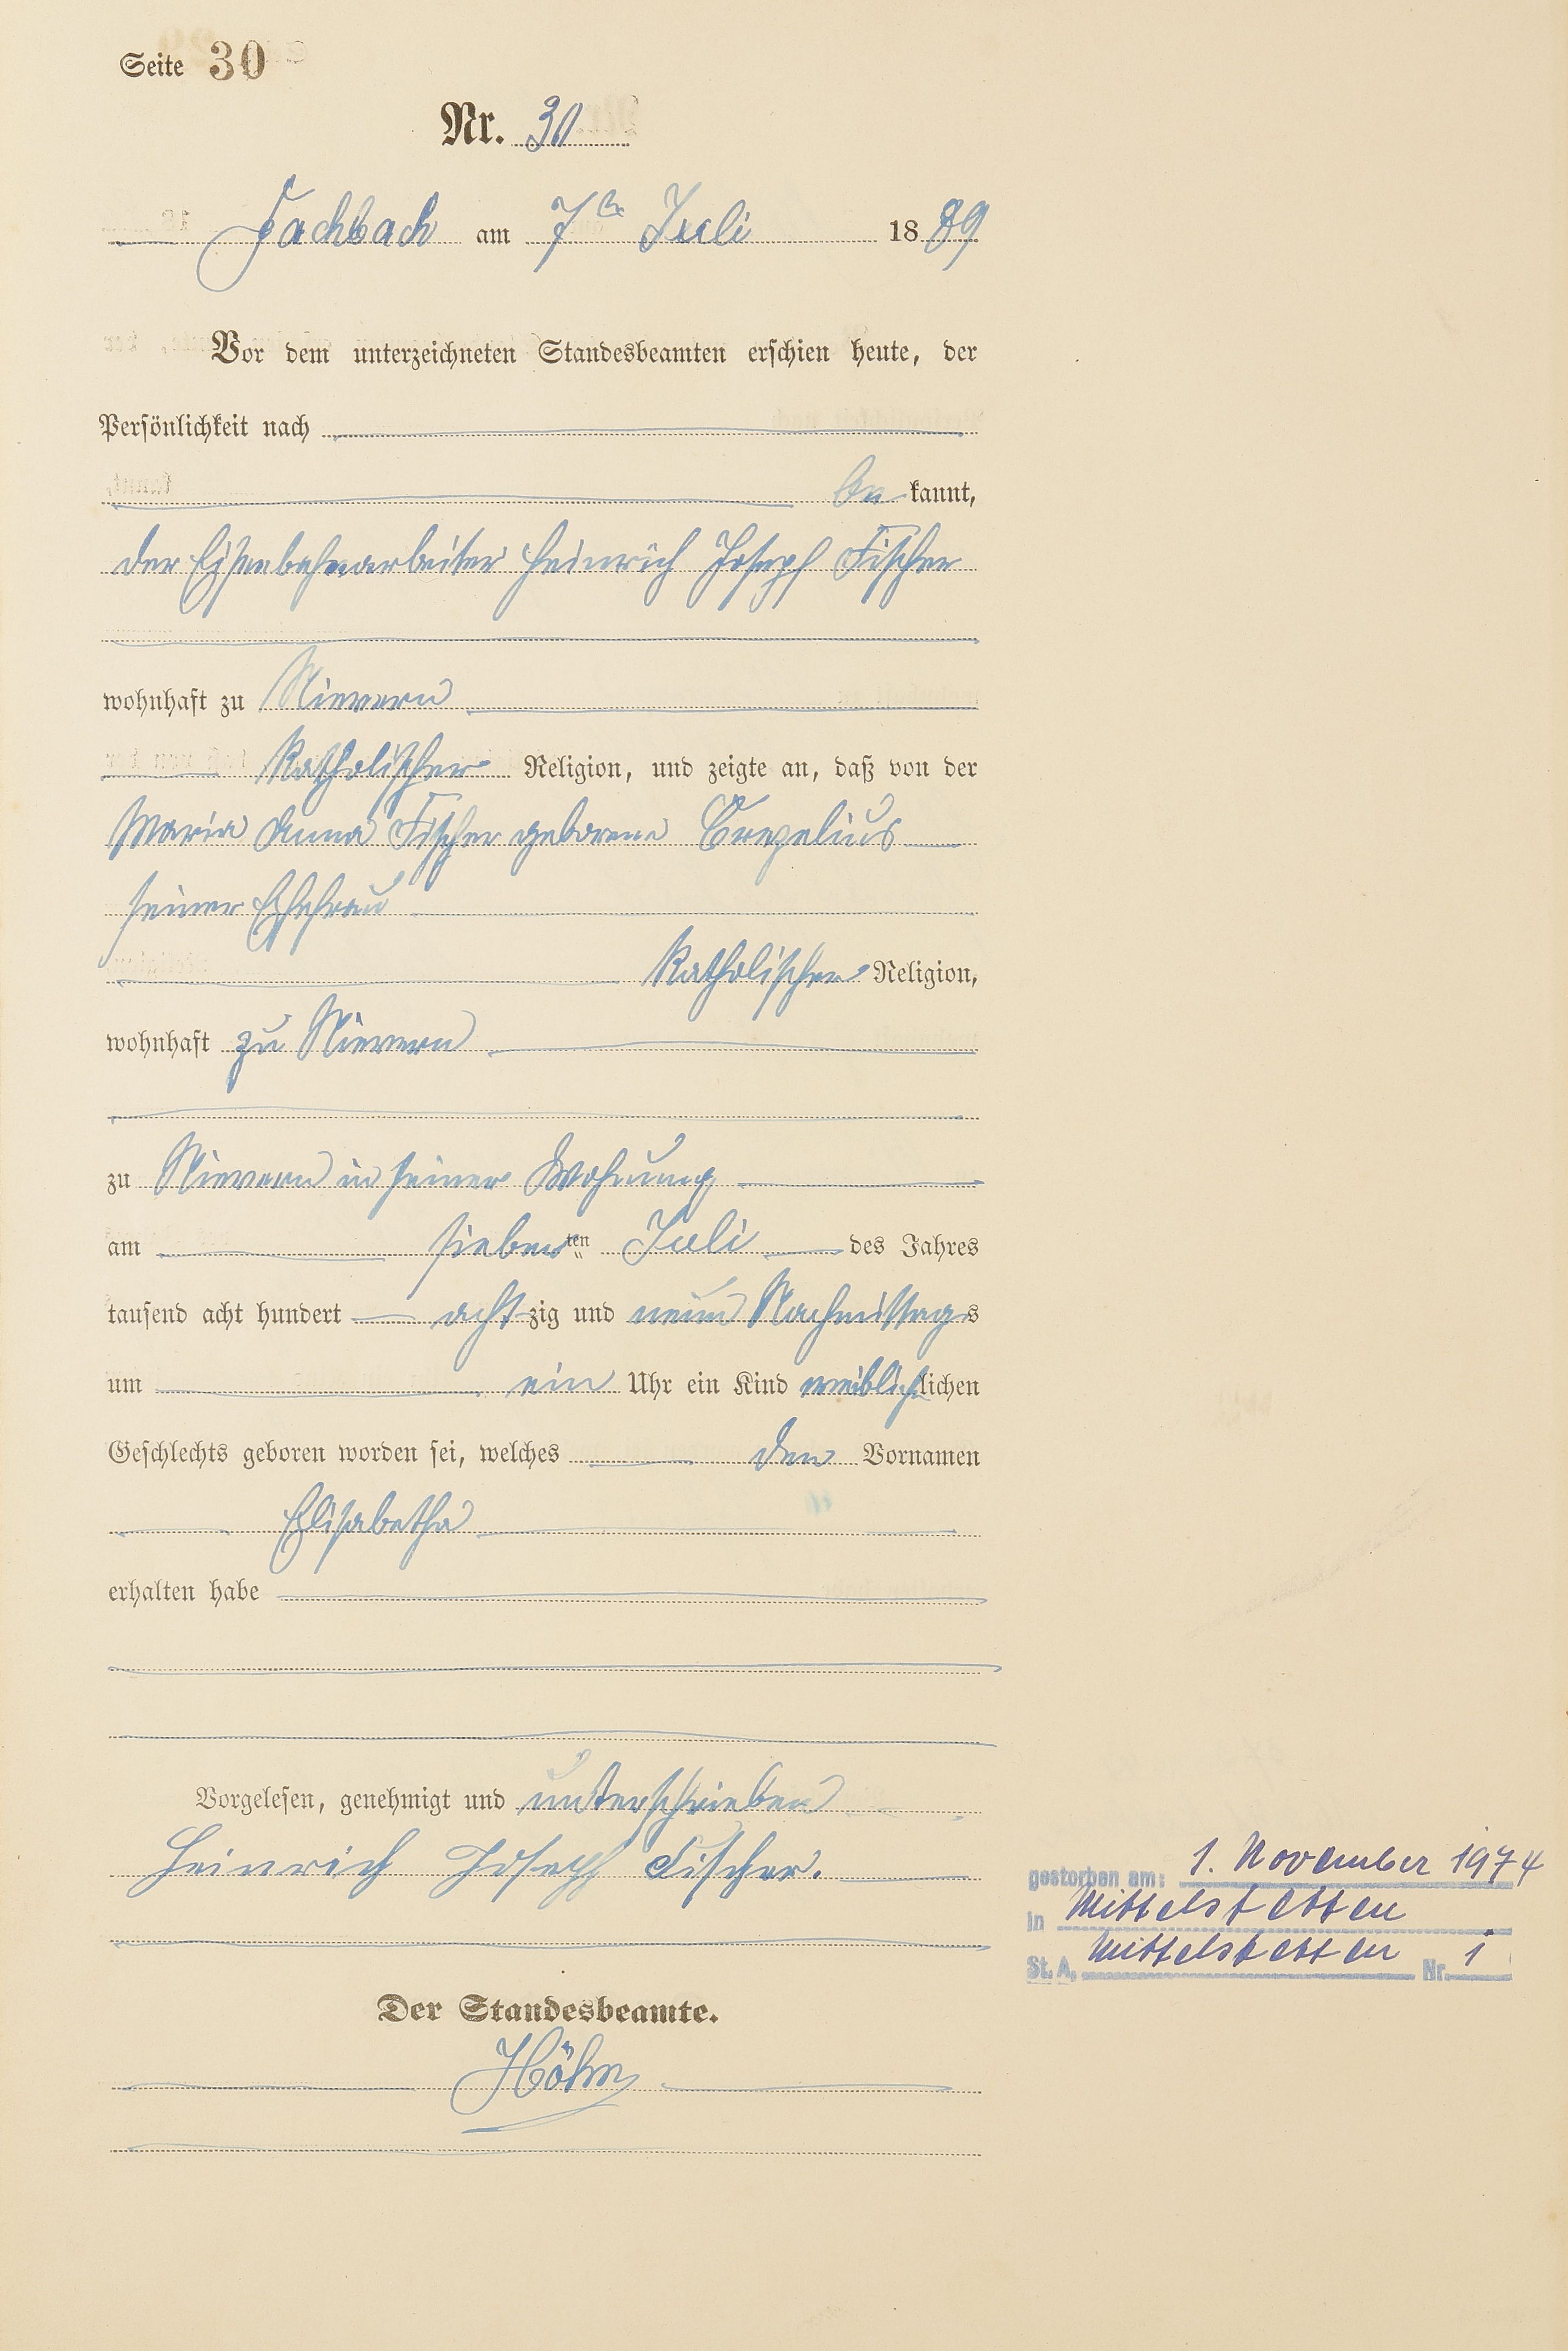 Seite 30
Nr. 30
Fachbach am 7te Juli 1889
Vor dem unterzeichneten Standesbeamten erschien heute, der
Persönlichkeit nach
be kannt,
der Eisenbahnarbeiter Heinrich Joseph Fischer
wohnhaft zu Nievern
Katholischer Religion, und zeigte an, daß von der
Maria Anna Fischer geborene Crezelius
seiner Ehefrau
Katholischer Religion,
wohnhaft zu Nievern
zu Nievern in seiner Wohnung
am siebenten Juli des Jahres
tausend acht hundert achtzig und neun Nachmittags
um ein Uhr ein Kind weiblichlichen
Geschlechts geboren worden sei, welches den Vornamen
Elisabetha
erhalten habe
Vorgelesen, genehmigt und unterschrieben
Heinrich Joseph Fischer.
gestorben am: 1. November 1974
in Mittelstetten
St. A. Mittelstetten Nr. 1
Der Standesbeamte.
Höhn